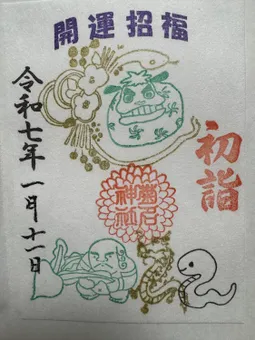 開運招福
初詣
神社
令和七年一月十一日